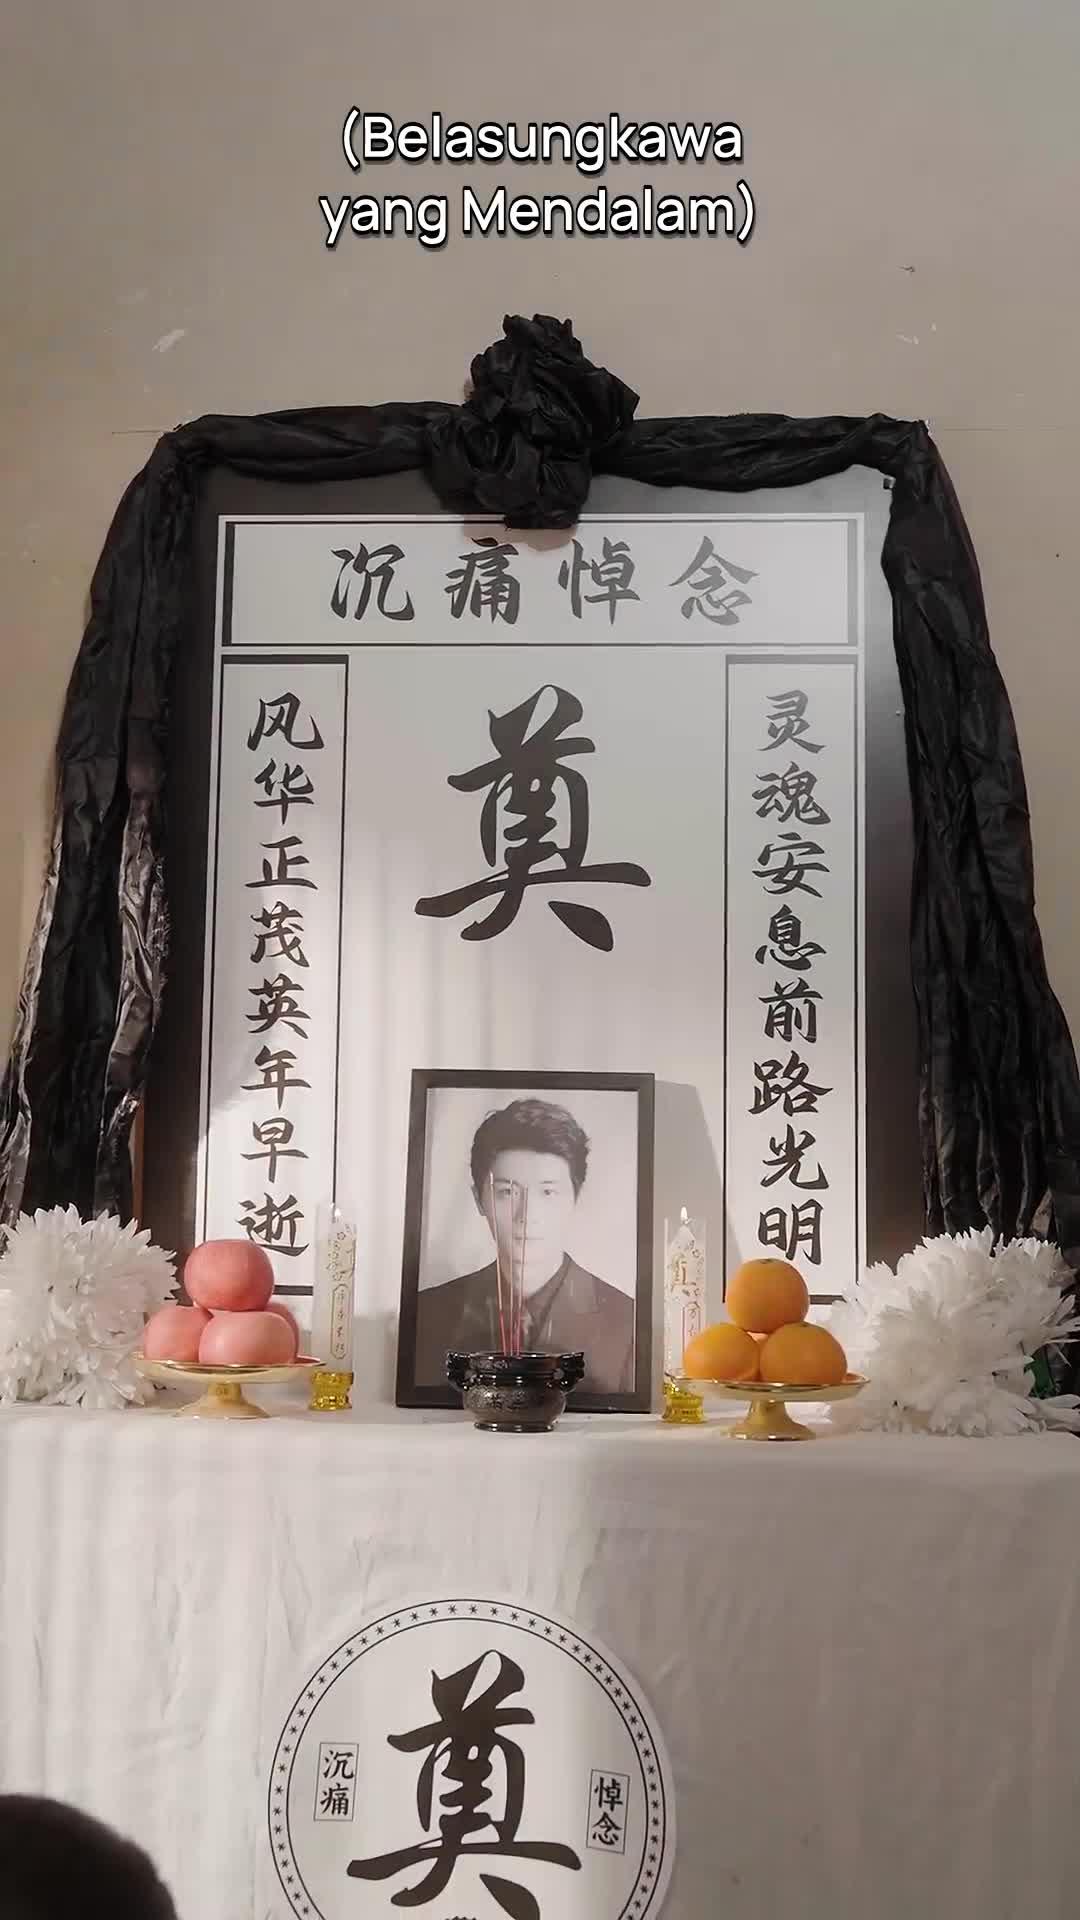 (Belasungkawa
yang Mendalam)
沉痛悼念
奠
风华正茂英年早逝
灵魂安息前路光明
奠
沉痛
悼念